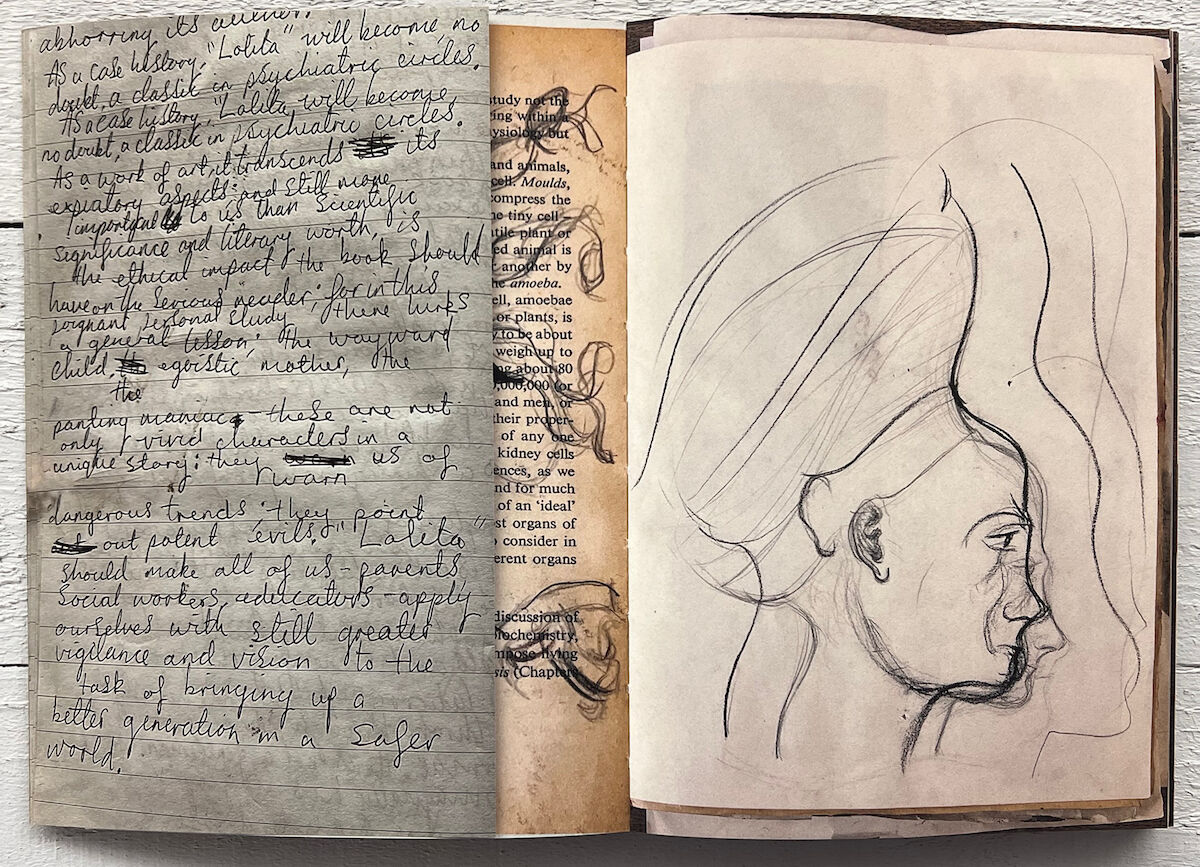 abhorring its author.
As a case history, "Lolita" will become, no
doubt, a classic in psychiatric circles.
As a case history, "Lolita, will become
no doubt, a classic in psychiatric circles.
As a work of art, it transcends its
expiatory aspects; and still more
important to us than scientific
significance and literary worth, is
the ethical impact the book should
have on the serious reader; for in this
poignant personal study there lurks
a general lesson; the wayward
child, egoistic mother, the
the
panting maniac - these are not
only vivid characters in a
unique story: they us of
warn
dangerous trends; they point
out potent evils. "Lolita"
should make all of us - parents,
social workers, educators - apply
ourselves with still greater
vigilance and vision to the
task of bringing up a
better generation in a safer
world.
study not the
ing within a
ysiology but
and animals,
cell. Moulds,
compress the
e tiny cell –
tile plant or
ed animal is
another by
e amoeba.
ell, amoebae
or plants, is
to be about
weigh up to
ng about 80
,000,000 (or
and men, or
their proper-
of any one
kidney cells
ences, as we
nd for much
of an 'ideal'
st organs of
consider in
erent organs
discussion of
iochemistry,
mpose living
sis (Chapter